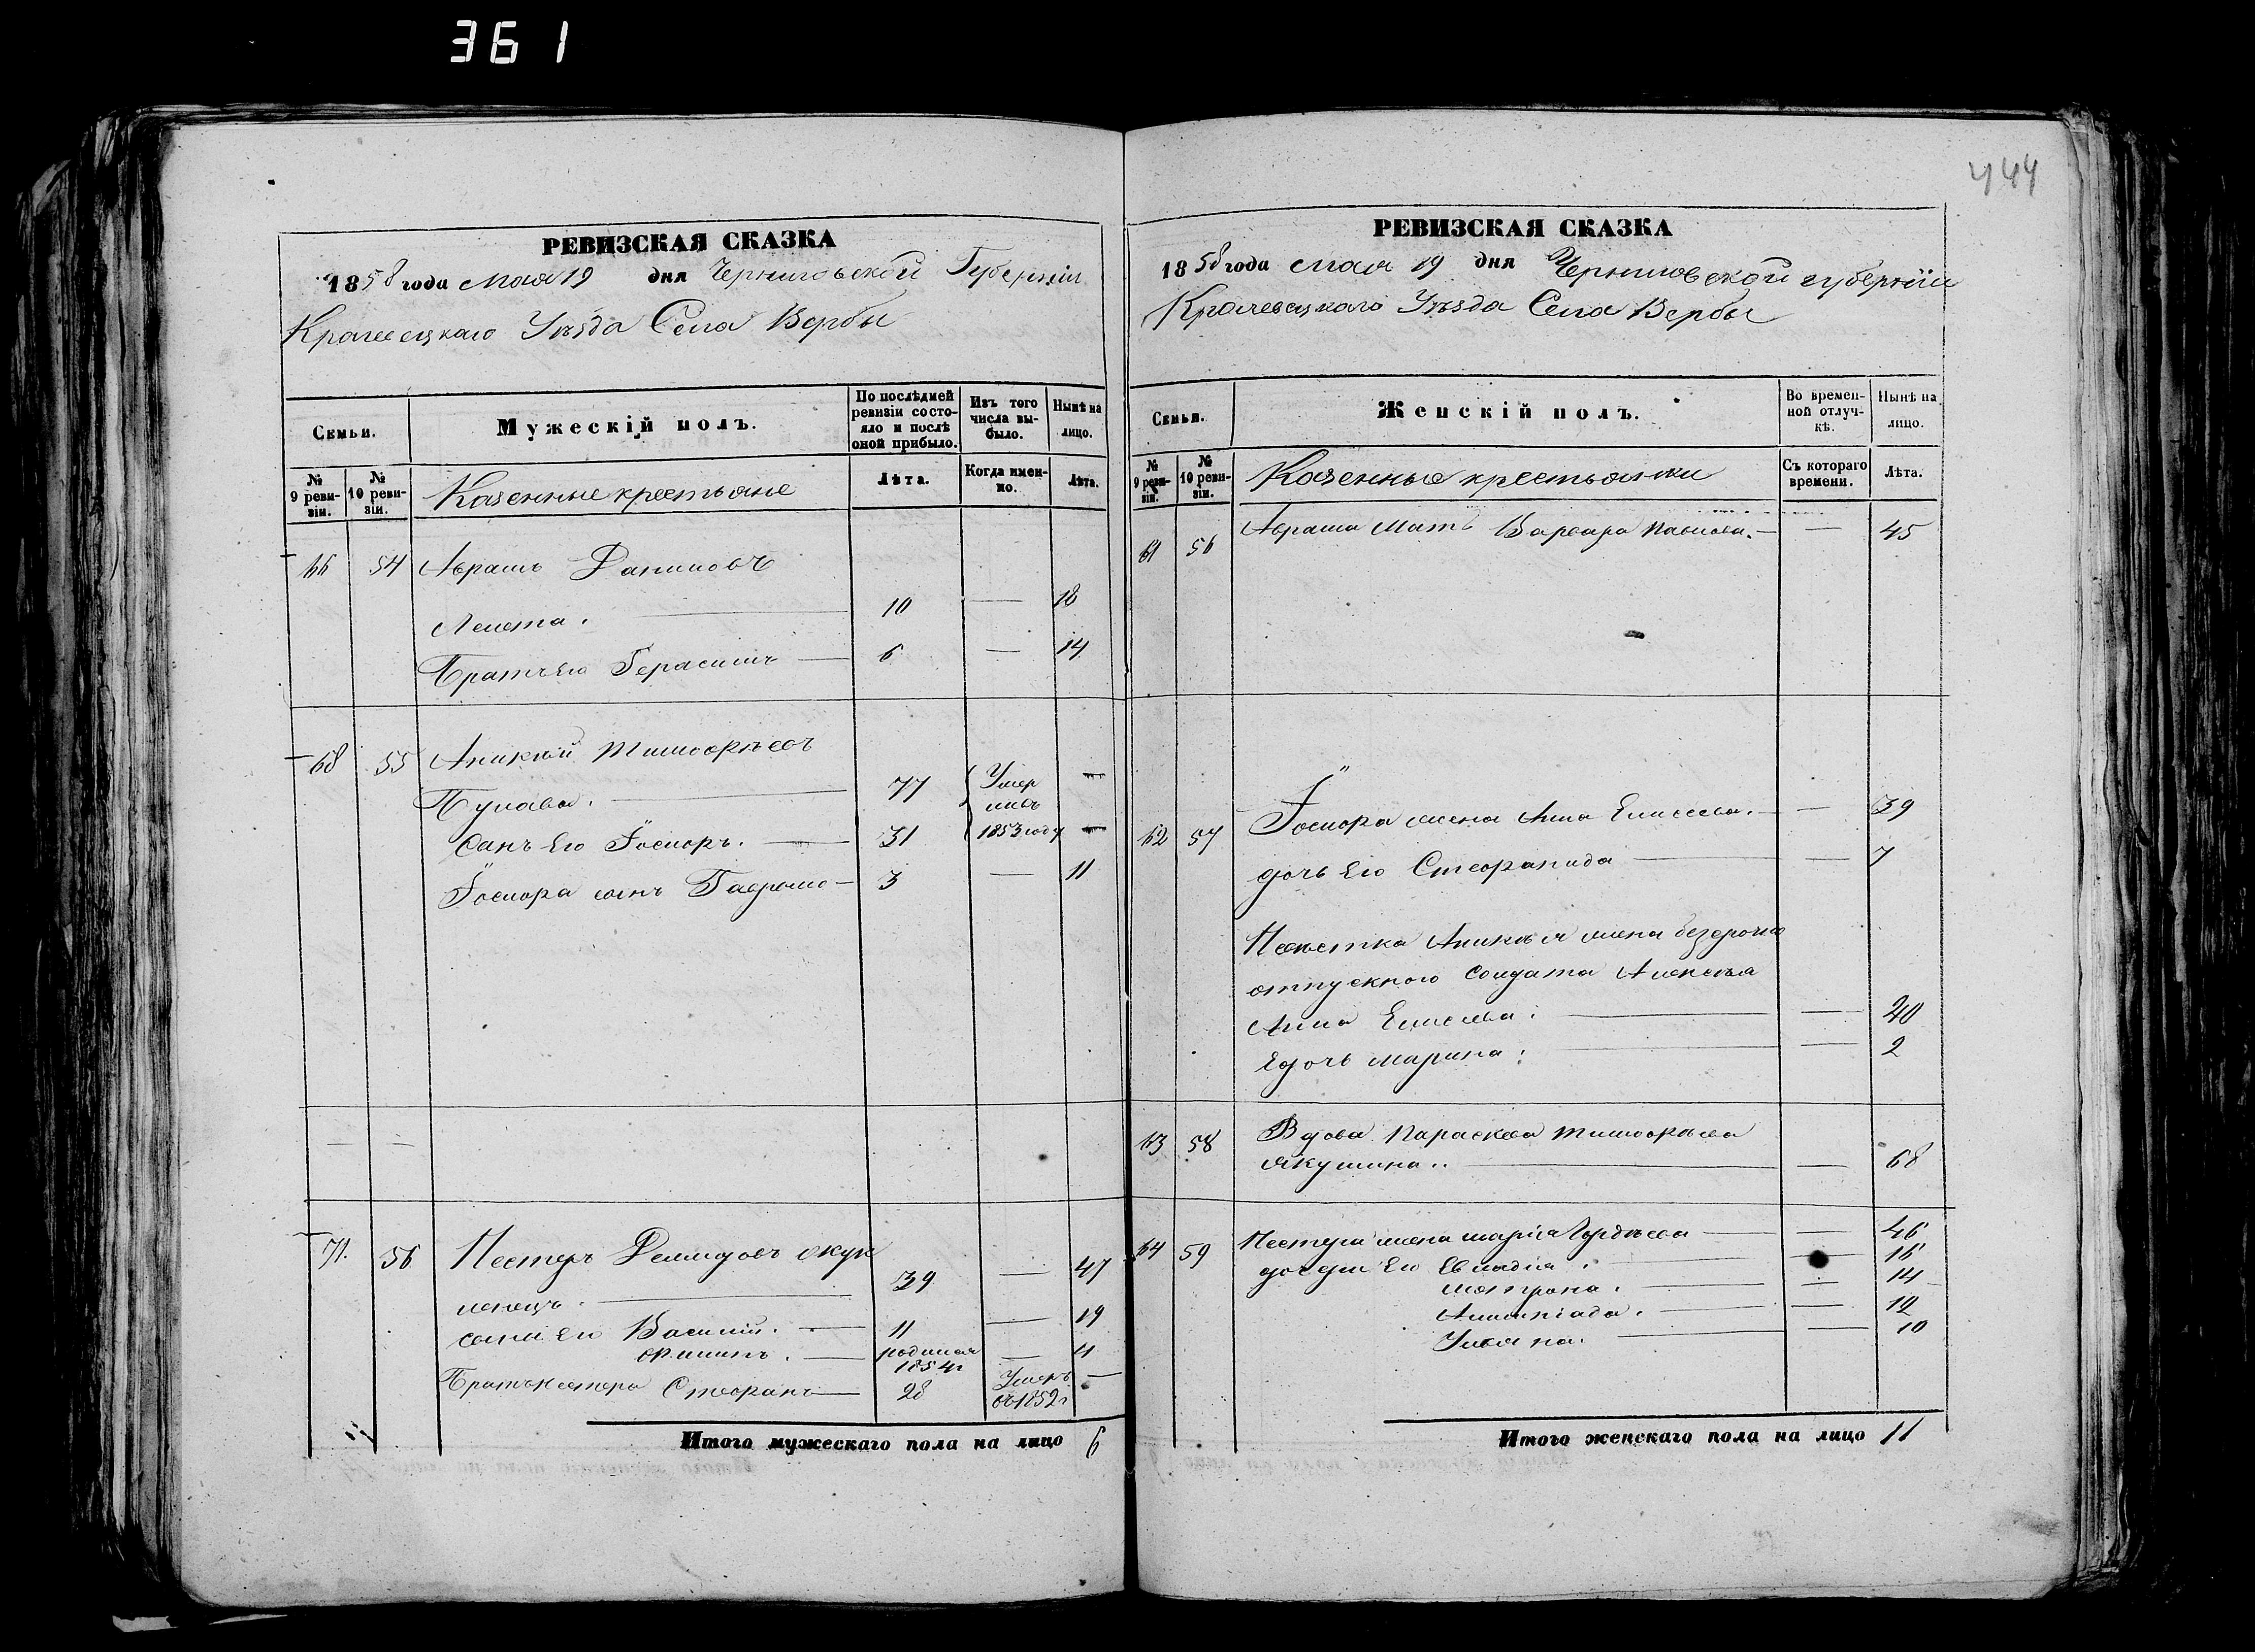 361
444
РЕВИЗСКАЯ СКАЗКА
1858 года мая 19 дня Черниговской Губерніи
Кролевецкаго Уѣзда Села Вербы
Семьи.
Мужескій полъ.
По послѣдней ревизіи состояло и послѣ оной прибыло.
Изъ того числа выбыло.
Нынѣ на лицо.
№ 9 ревизіи.
№ 10 ревизіи.
Казенные крестьяне
Лѣта.
Когда именно.
Лѣта.
66 54 Абрамъ Даниловъ
10 — 18
Братъ его Герасимъ — 6 — 14
68 55 Аникѣй Тимофѣевъ
77 Умер —
Сынъ его Іосифъ. — 31 1853 году —
сынъ 3 — 11
— —
71. 56 Нестеръ Демидовъ
39 — 47
сыны его Василий. — 11 — 19
Филипъ. — родился 1854г — 4
Братъ Нестера Стефанъ — 28 Умеръ въ 1852г —
Итого мужескаго пола на лицо 6
РЕВИЗСКАЯ СКАЗКА
1858 года мая 19 дня Черниговской губерніи
Кролевецкаго Уѣзда Села Вербы
Семьи.
Женскій полъ.
Во временной отлучкѣ.
Нынѣ на лицо.
№ 9 ревизіи.
№ 10 ревизіи.
Казенные крестьянки
Съ котораго времени.
Лѣта.
61 56 Абрама мать Варвара Павлова. — — 45
62 57 жена Анна Елисеева. — — 39
дочь его Стефанида — — 7
Невѣстка Аникѣя жена безсрочно
отпускного солдата Алексѣя
Анна — — 40
Ея дочь Марина — — 2
63 58 Вдова Параскева Тимофѣева
Якушина — — 68
64 59 Нестера жена Марія Гордѣева — — 46
дочери его Евладія — — 16
Мотрона. — — 14
— — 12
Ульяна. — — 10
Итого женскаго пола на лицо 11